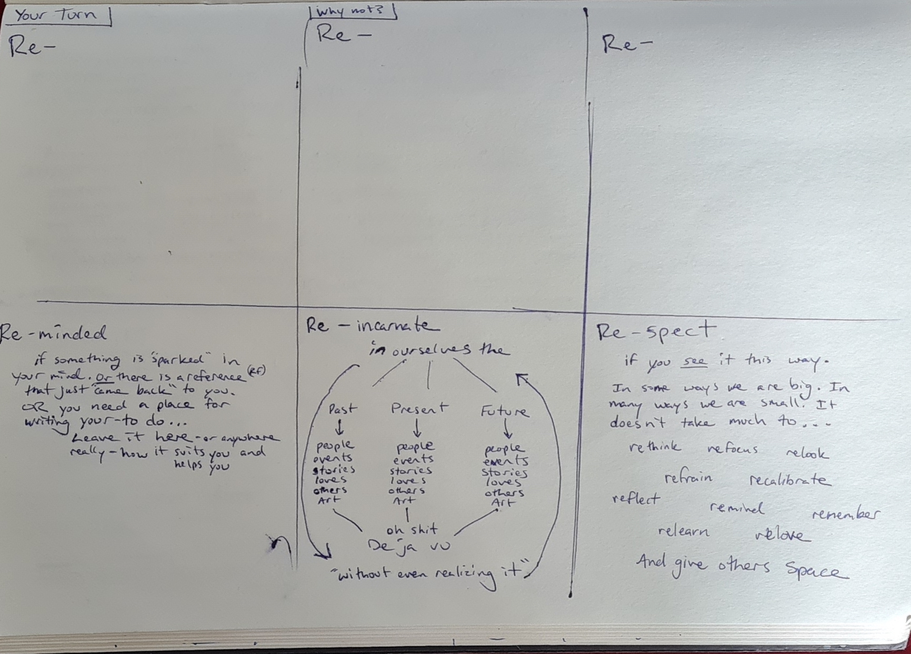 Your Turn
Re-
Why not?
Re-
Re-
Re-minded
if something is "sparked" in
your mind. or there is a reference (RF)
that just "came back" to you.
OR you need a place for
writing your-to do...
Leave it here-or anywhere
really-how it suits you and
helps you
Re-incarnate
in ourselves the
Past
people
events
stories
loves
others
Art
Present
people
events
stories
loves
others
Art
Future
people
events
stories
loves
others
Art
oh shit
Deja vu
"without even realizing it"
Re-spect
if you see it this way.
In some ways we are big. In
many ways we are small. It
doesn't take much to...
rethink refocus relook
refrain recalibrate
reflect remind remember
relearn relove
And give others Space